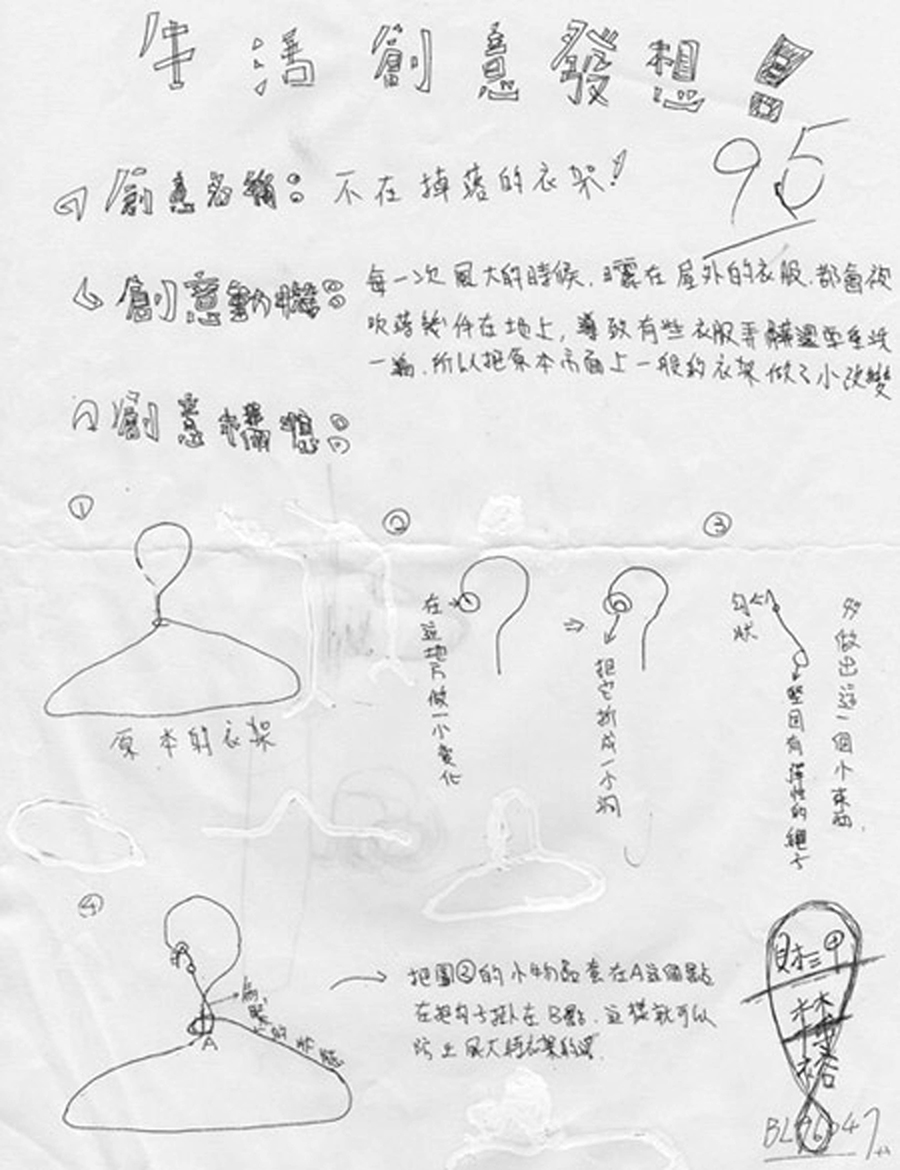 生活創意發想!
創意名稱:不在掉落的衣架!
創意動機:每一次風大的時候,曬在屋外的衣服,都會被
吹落幾件在地上,導致有些衣服弄髒還要重洗
一遍,所以把原本市面上一般的衣架做了小改變
創意構想:
95
①
原本的衣架
②
在這地方做一小變化
把它折成一小洞
③
勾狀
堅固有彈性的繩子
多做出這一個小東西.
④
A
把圖②的小物品套在A這個點
在把勾子掛在B點,這樣就可以
防止風大時衣架
財三甲